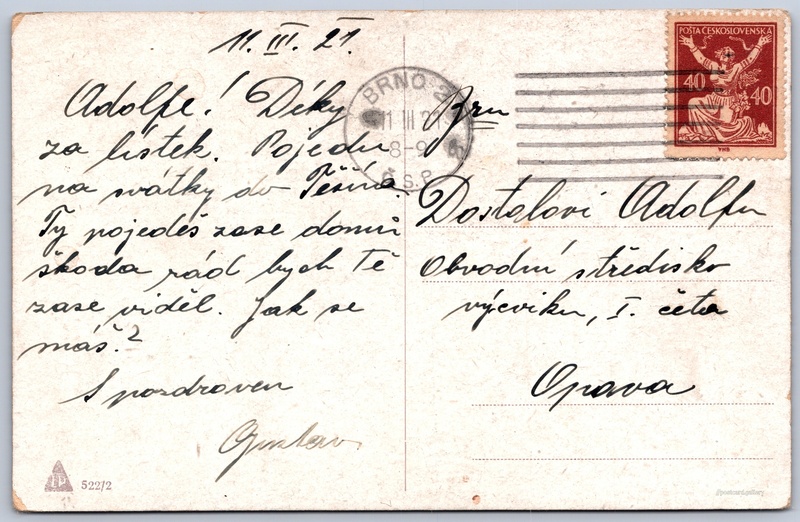 11. III. 21.
Adolfe! Díky
za lístek. Pojedu
na svátky do Těšína.
Ty pojedeš zase domů
škoda rád bych Tě
zase viděl. Jak se
máš?
S pozdravem
Gustav
522/2
BRNO 2
11 III 21
8-9
Č.S.P.
POŠTA ČESKOSLOVENSKÁ
40 40
Brn
Dostalovi Adolfu
Obvodní středisko
výcviku, I. četa
Opava